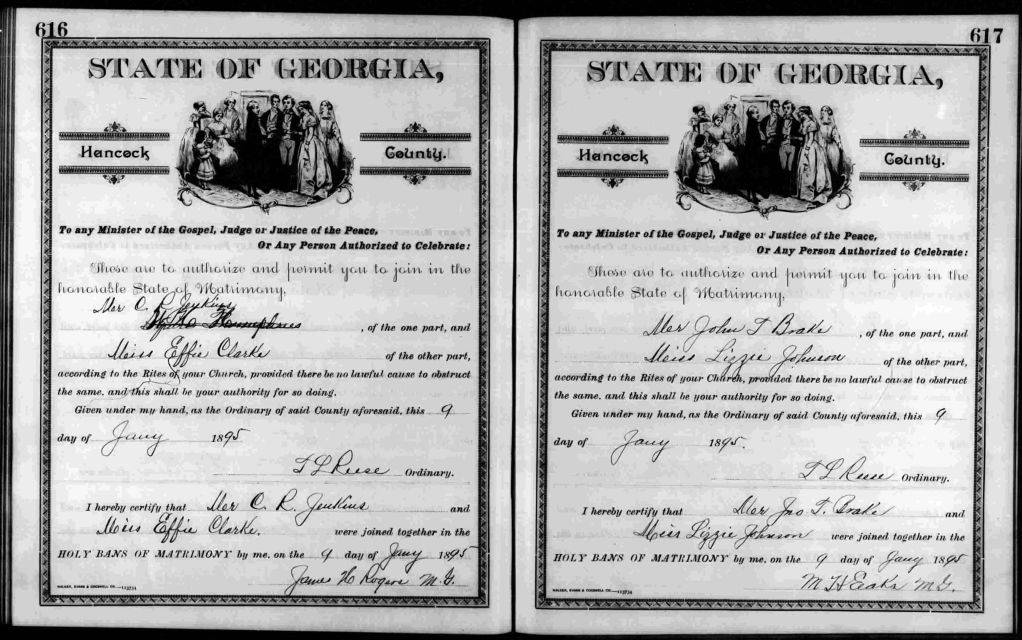 616
STATE OF GEORGIA,
Hancock County.
To any Minister of the Gospel, Judge or Justice of the Peace,
Or Any Person Authorized to Celebrate:
These are to authorize and permit you to join in the
honorable State of Matrimony,
Mr C. R. Jenkins
Humphries , of the one part, and
Miss Effie Clarke of the other part,
according to the Rites of your Church, provided there be no lawful cause to obstruct
the same, and this shall be your authority for so doing.
Given under my hand, as the Ordinary of said County aforesaid, this 9
day of Jany 1895
T L Reese Ordinary.
I hereby certify that Mr C. R. Jenkins and
Miss Effie Clarke. were joined together in the
HOLY BANS OF MATRIMONY by me, on the 9 day of Jany 1895
James H Rogers M.G.
WALKER, EVANS & COGSWELL CO.—113734
617
STATE OF GEORGIA,
Hancock County.
To any Minister of the Gospel, Judge or Justice of the Peace,
Or Any Person Authorized to Celebrate:
These are to authorize and permit you to join in the
honorable State of Matrimony,
Mr John T Brake , of the one part, and
Miss Lizzie Johnson of the other part,
according to the Rites of your Church, provided there be no lawful cause to obstruct
the same, and this shall be your authority for so doing.
Given under my hand, as the Ordinary of said County aforesaid, this 9
day of Jany 1895.
T L Reese Ordinary.
I hereby certify that Mr Jno T. Brake and
Miss Lizzie Johnson were joined together in the
HOLY BANS OF MATRIMONY by me, on the 9 day of Jany 1895
M H Eaks M.G.
WALKER, EVANS & COGSWELL CO.—113734